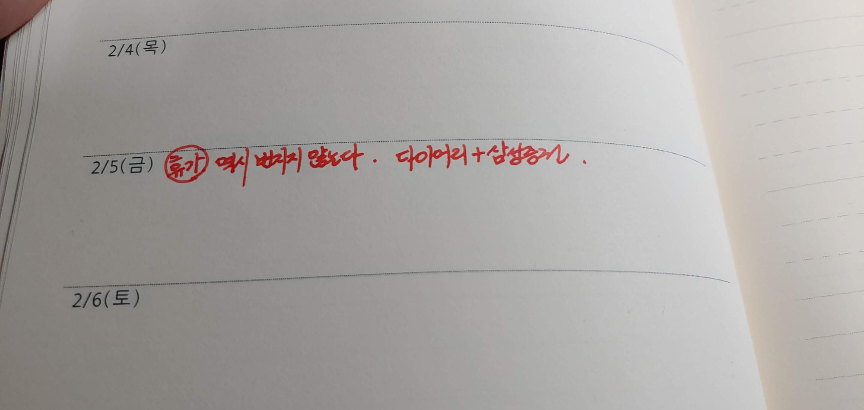 2/4(목)
2/5(금) 휴가 역시 번지지 않는다. 다이어리+삼성증권.
2/6(토)